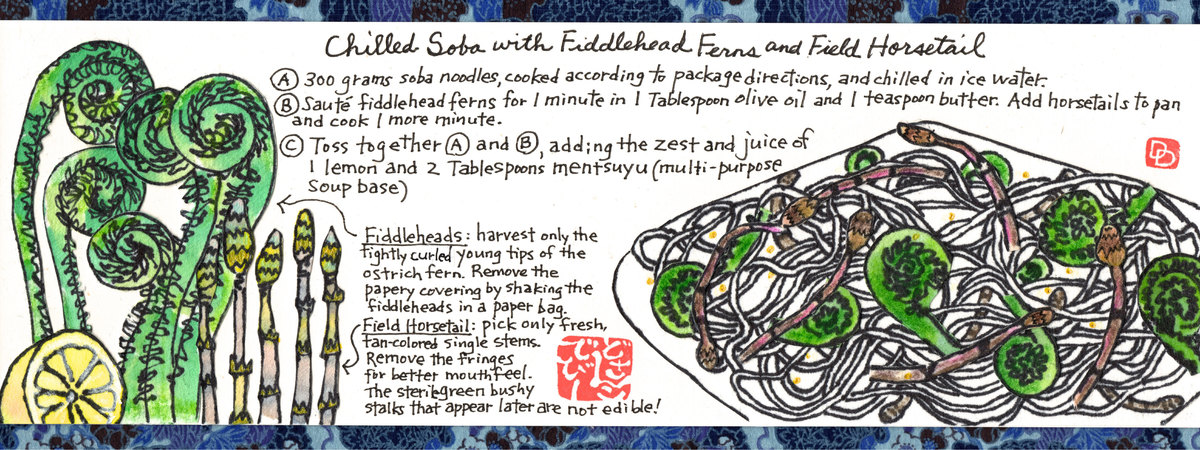 Chilled Soba with Fiddlehead Ferns and Field Horsetail
Ⓐ 300 grams soba noodles, cooked according to package directions, and chilled in ice water.
Ⓑ Sauté fiddlehead ferns for 1 minute in 1 Tablespoon olive oil and 1 teaspoon butter. Add horsetails to pan
and cook 1 more minute.
Ⓒ Toss together Ⓐ and Ⓑ, adding the zest and juice of
1 lemon and 2 Tablespoons mentsuyu (multi-purpose
Soup base)
Fiddleheads: harvest only the
tightly curled young tips of the
ostrich fern. Remove the
papery covering by shaking the
fiddleheads in a paper bag.
Field Horsetail: pick only fresh,
tan-colored single stems.
Remove the fringes
for better mouthfeel.
The sterile green bushy
stalks that appear later are not edible!